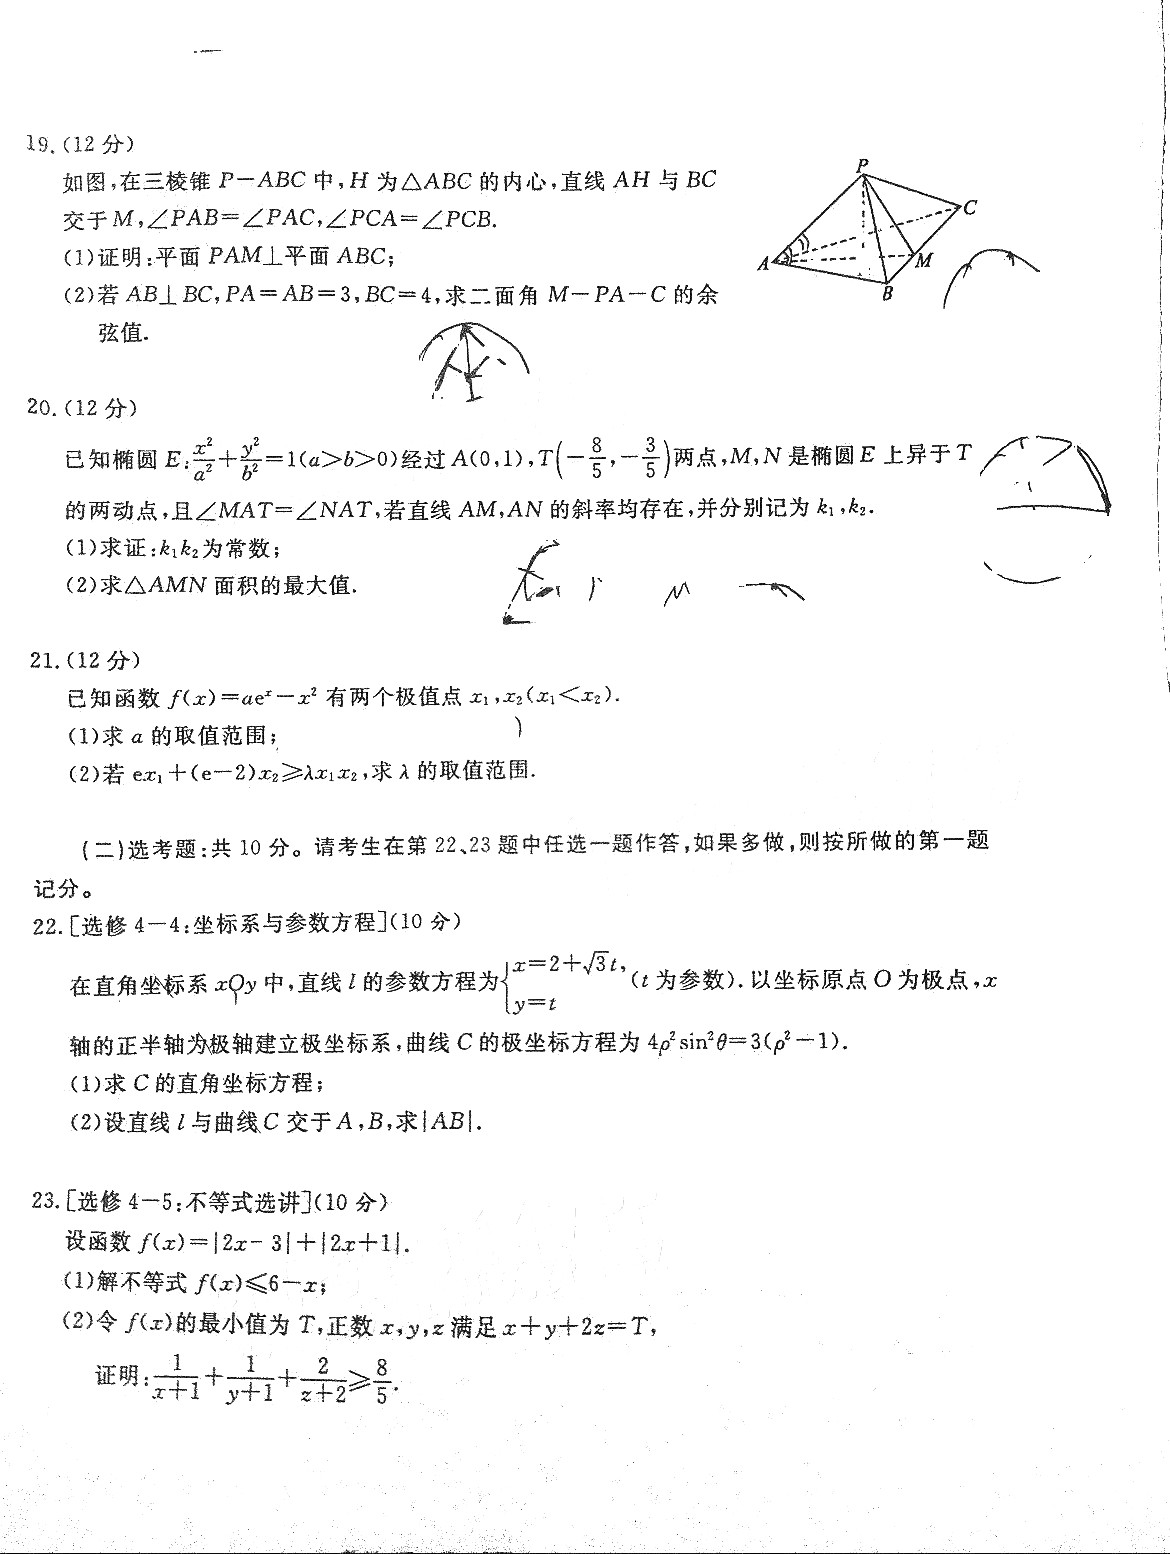 19.(12 分)
如图,在三棱锥 P-ABC 中,H 为△ABC 的内心,直线 AH 与 BC
交于 M,∠PAB=∠PAC,∠PCA=∠PCB.
(1)证明:平面 PAM⊥平面 ABC;
(2)若 AB⊥BC,PA=AB=3,BC=4,求二面角 M-PA-C 的余
弦值.
P
C
A
M
B
20.(12 分)
已知椭圆 E:x²/a²+y²/b²=1(a>b>0)经过 A(0,1),T(-8/5,-3/5)两点,M,N 是椭圆 E 上异于 T
的两动点,且∠MAT=∠NAT,若直线 AM,AN 的斜率均存在,并分别记为 k₁,k₂.
(1)求证:k₁k₂为常数;
(2)求△AMN 面积的最大值.
21.(12 分)
已知函数 f(x)=aeˣ-x² 有两个极值点 x₁,x₂(x₁<x₂).
(1)求 a 的取值范围;
(2)若 ex₁+(e-2)x₂≥λx₁x₂,求 λ 的取值范围.
(二)选考题:共 10 分。请考生在第 22、23 题中任选一题作答,如果多做,则按所做的第一题
记分。
22.[选修 4-4:坐标系与参数方程](10 分)
在直角坐标系 xOy 中,直线 l 的参数方程为{x=2+√3t, y=t (t 为参数).以坐标原点 O 为极点,x
轴的正半轴为极轴建立极坐标系,曲线 C 的极坐标方程为 4ρ²sin²θ=3(ρ²-1).
(1)求 C 的直角坐标方程;
(2)设直线 l 与曲线 C 交于 A,B,求|AB|.
23.[选修 4-5:不等式选讲](10 分)
设函数 f(x)=|2x-3|+|2x+1|.
(1)解不等式 f(x)≤6-x;
(2)令 f(x)的最小值为 T,正数 x,y,z 满足 x+y+2z=T,
证明:1/(x+1)+1/(y+1)+2/(z+2)≥8/5.